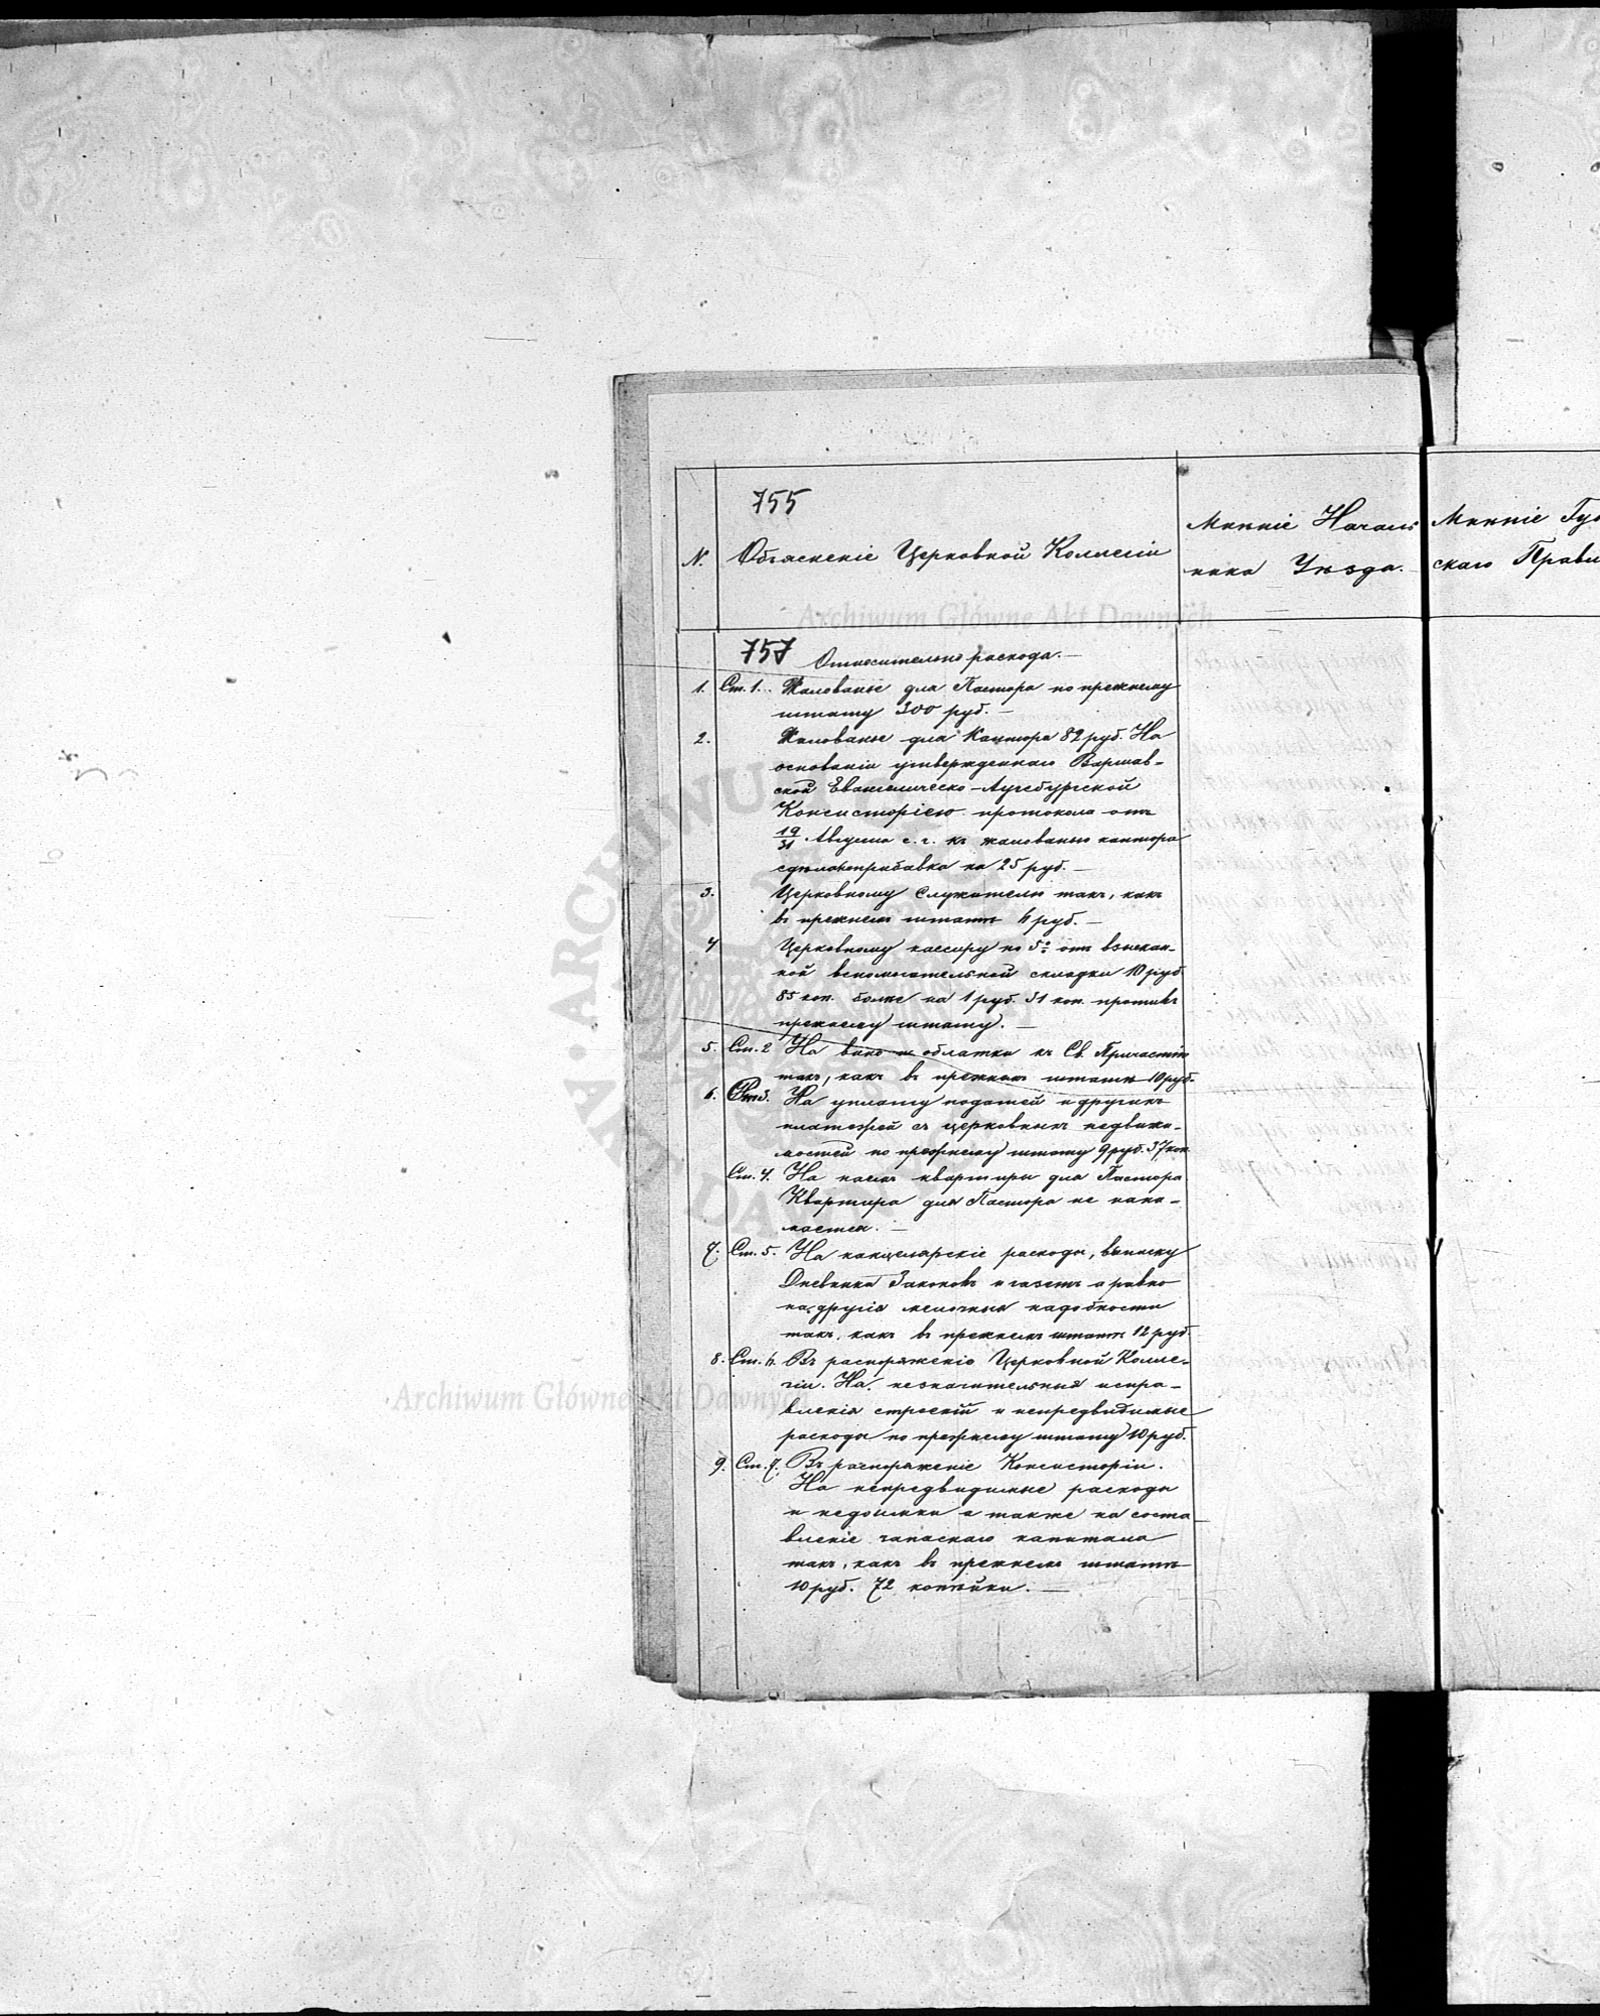 755
N. Объясненіе Церковной Коллегіи
Мнѣніе Началь
ника Уѣзда.
Мнѣніе Гу
скаго Правл
Archiwum Główne Akt Dawnych
757 Относительно расхода. —
1. Ст. 1. Жалованье для Пастора по прежнему
штату 300 руб. —
2. Жалованье для Кантора 82 руб. На
основаніи утвержденнаго Варшав-
ской Евангелическо-Аугсбургской
Консисторіею протокола отъ
19/31 Августа с. г. къ жалованью кантора
сдѣлана прибавка на 25 руб. —
3. Церковному служителю такъ, какъ
въ прежнемъ штатѣ 6 руб. —
4 Церковному кассиру по 5% отъ взыскан-
ной вспомогательной складки 10 руб.
85 коп. болѣе на 1 руб. 51 коп. противъ
прежнему штату. —
5. Ст. 2 На вино и облатки къ Св. Причастію
такъ, какъ въ прежнемъ штатѣ 10 руб.
6. Ст. 3. На уплату податей и другихъ
платежей съ церковныхъ недвижи-
мостей по прежнему штату 9 руб. 37 коп.
Ст. 4. На наемъ квартиры для Пастора
Квартира для Пастора не нани-
мается. —
7. Ст. 5. На канцелярскіе расходы, выписку
Дневника Законовъ и газетъ а равно
на другія мелочныя надобности
такъ, какъ въ прежнемъ штатѣ 12 руб.
8. Ст. 6. Въ распоряженіе Церковной Колле-
гіи. На незначительныя испра-
вленія строеній и непредвидимые
расходы по прежнему штату 10 руб.
Archiwum Główne Akt Dawnych
9. Ст. 7. Въ распоряженіе Консисторіи.
На непредвидимые расходы
и недоимки а также на соста
вленіе запаснаго капитала
такъ, какъ въ прежнемъ штатѣ
10 руб. 72 копѣйки. —